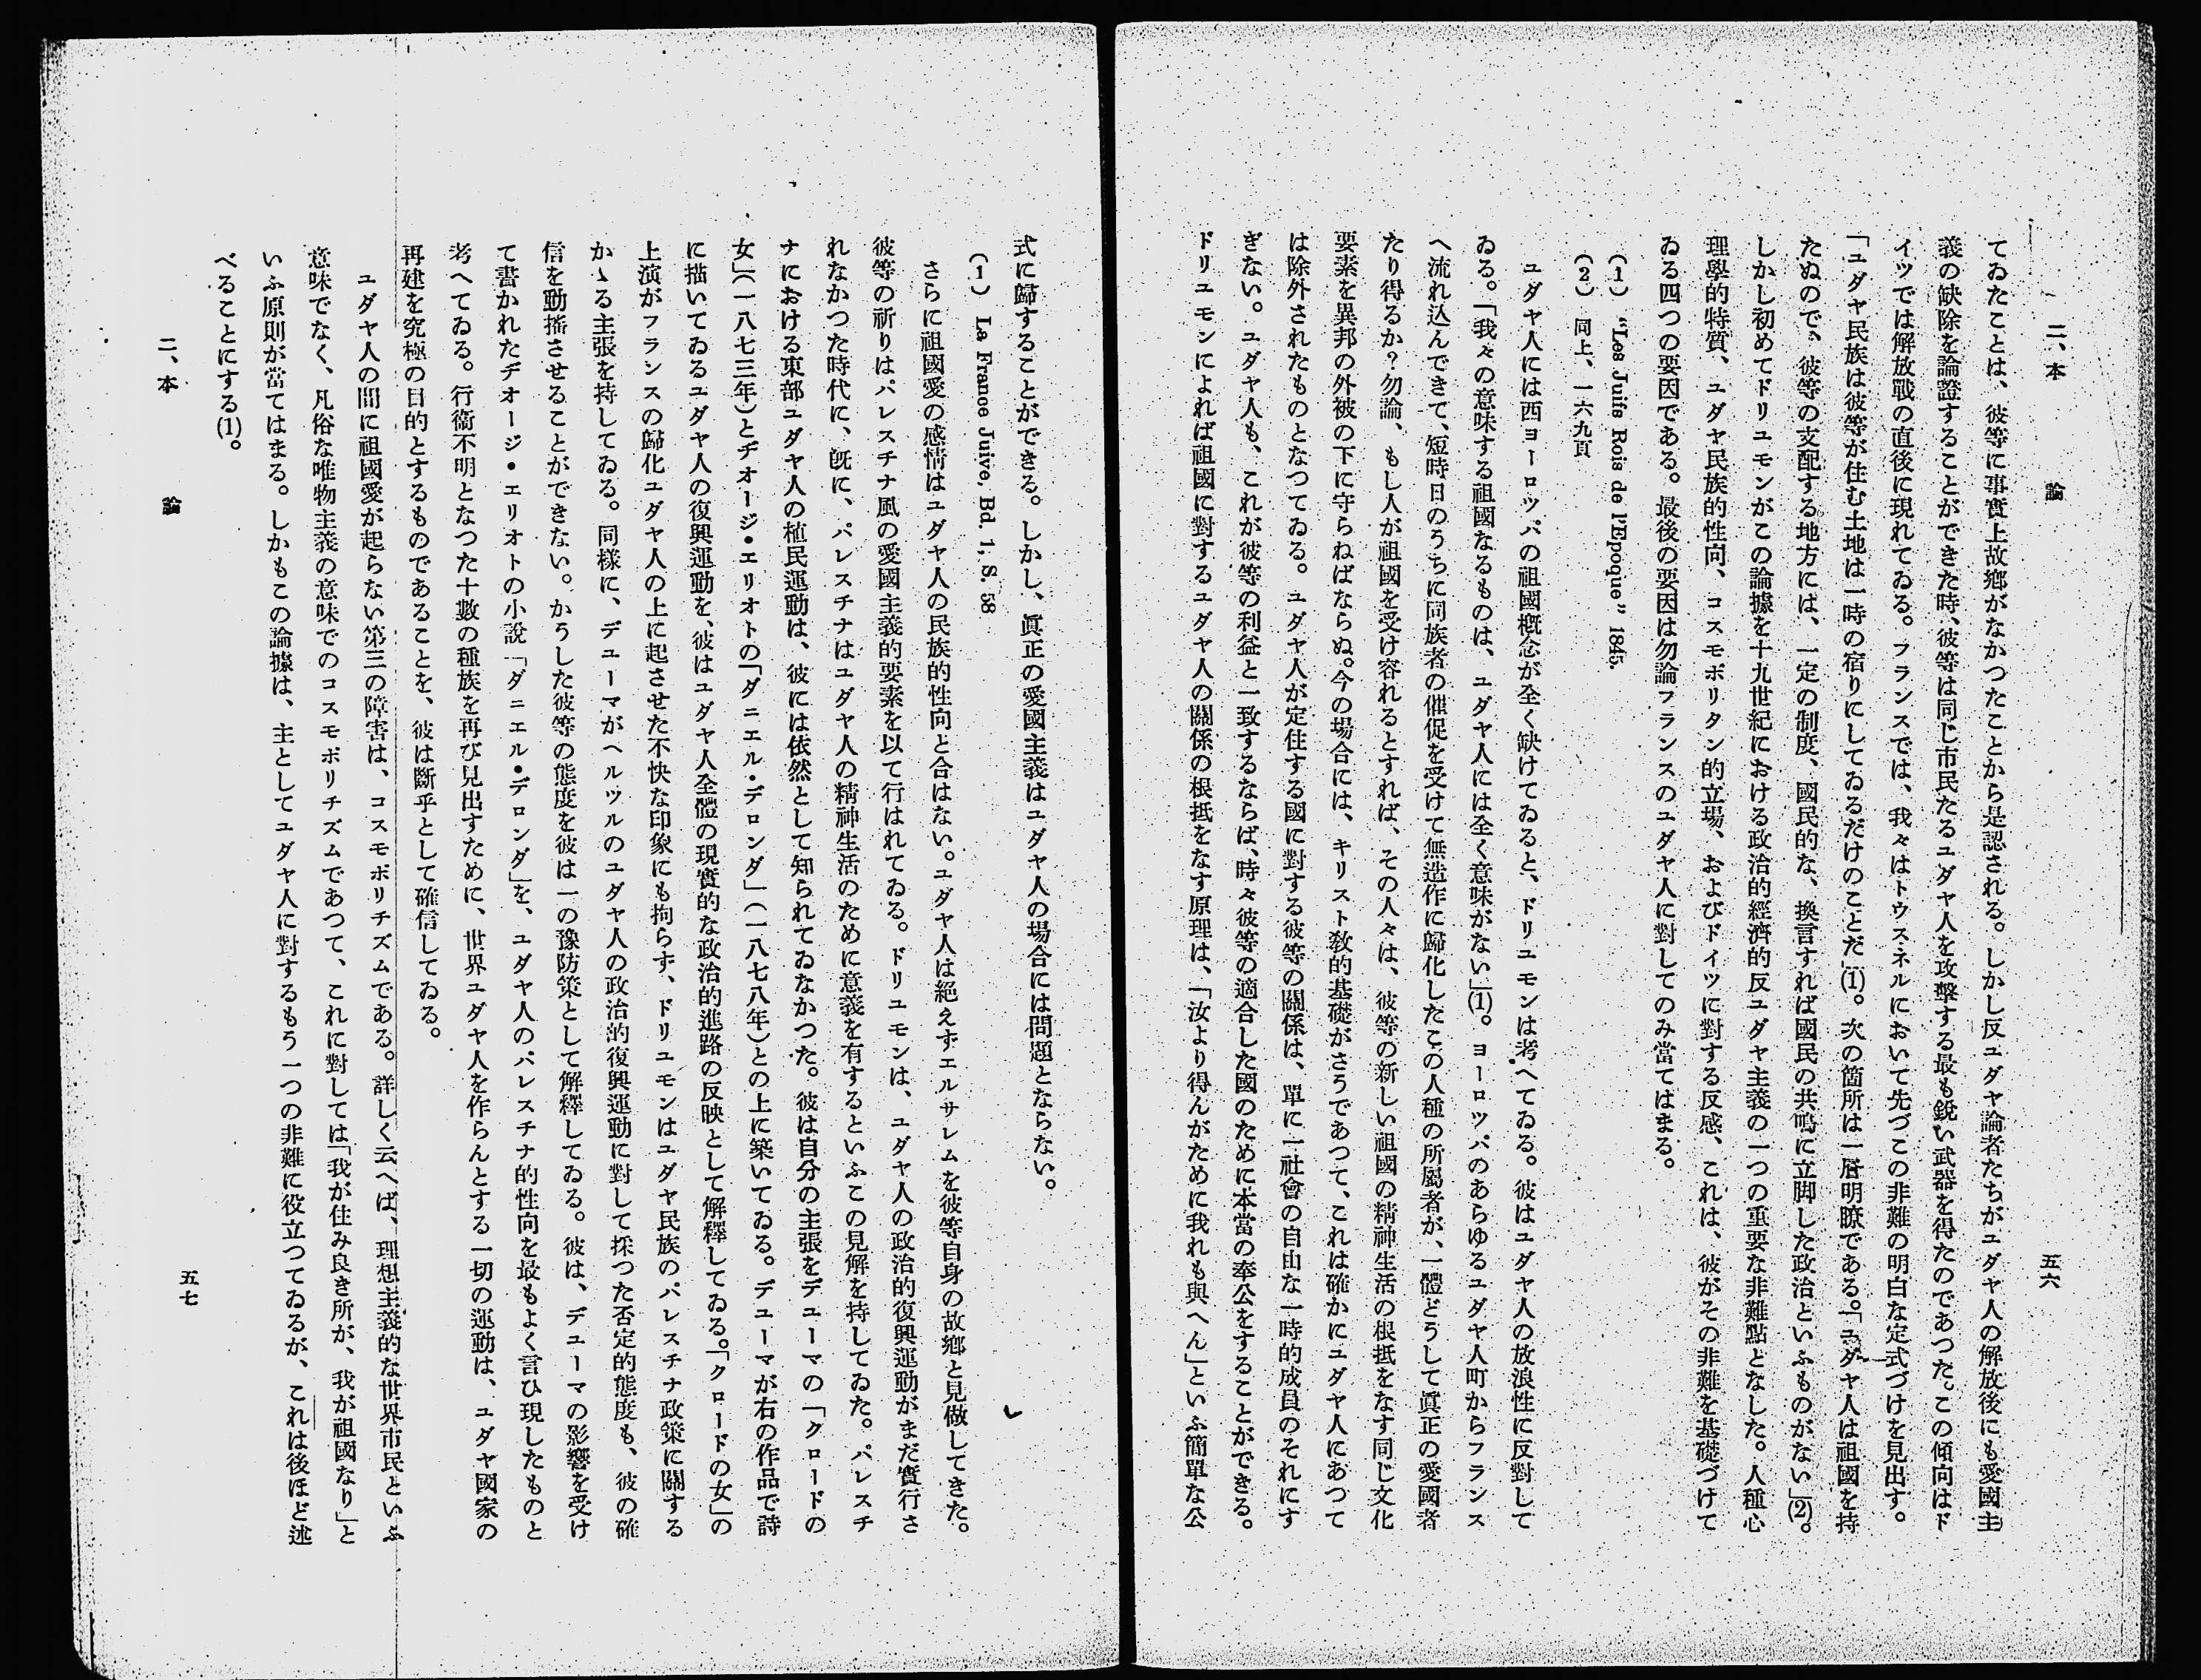 二、本　論
五六
てゐたことは、彼等に事實上故鄕がなかつたことから是認される。しかし反ユダヤ論者たちがユダヤ人の解放後にも愛國主
義の缺除を論證することができた時、彼等は同じ市民たるユダヤ人を攻擊する最も銳い武器を得たのであつた。この傾向はド
イツでは解放戰の直後に現れてゐる。フランスでは、我々はトウスネルにおいて先づこの非難の明白な定式づけを見出す。
「ユダヤ民族は彼等が住む土地は一時の宿りにしてゐるだけのことだ」(1)。次の箇所は一層明瞭である。「ユダヤ人は祖國を持
たぬので、彼等の支配する地方には、一定の制度、國民的な、換言すれば國民の共鳴に立脚した政治といふものがない」(2)。
しかし初めてドリユモンがこの論據を十九世紀における政治的經濟的反ユダヤ主義の一つの重要な非難點となした。人種心
理學的特質、ユダヤ民族的性向、コスモポリタン的立場、およびドイツに對する反感、これは、彼がその非難を基礎づけて
ゐる四つの要因である。最後の要因は勿論フランスのユダヤ人に對してのみ當てはまる。
(1) “Les Juifs Rois de l'Epoque” 1845.
(2) 同上、一六九頁
ユダヤ人には西ヨーロツパの祖國概念が全く缺けてゐると、ドリユモンは考へてゐる。彼はユダヤ人の放浪性に反對して
ゐる。「我々の意味する祖國なるものは、ユダヤ人には全く意味がない」(1)。ヨーロツパのあらゆるユダヤ人町からフランス
へ流れ込んできて、短時日のうちに同族者の催促を受けて無造作に歸化したこの人種の所屬者が、一體どうして眞正の愛國者
たり得るか？勿論、もし人が祖國を受け容れるとすれば、その人々は、彼等の新しい祖國の精神生活の根抵をなす同じ文化
要素を異邦の外被の下に守らねばならぬ。今の場合には、キリスト敎的基礎がさうであつて、これは確かにユダヤ人にあつて
は除外されたものとなつてゐる。ユダヤ人が定住する國に對する彼等の關係は、單に一社會の自由な一時的成員のそれにす
ぎない。ユダヤ人も、これが彼等の利益と一致するならば、時々彼等の適合した國のために本當の奉公をすることができる。
ドリユモンによれば祖國に對するユダヤ人の關係の根抵をなす原理は、「汝より得んがために我れも與へん」といふ簡單な公
式に歸することができる。しかし、眞正の愛國主義はユダヤ人の場合には問題とならない。
(1) La France Juive, Bd 1, S. 58
さらに祖國愛の感情はユダヤ人の民族的性向と合はない。ユダヤ人は絕えずエルサレムを彼等自身の故鄕と見做してきた。
彼等の祈りはパレスチナ風の愛國主義的要素を以て行はれてゐる。ドリユモンは、ユダヤ人の政治的復興運動がまだ實行さ
れなかつた時代に、旣に、パレスチナはユダヤ人の精神生活のために意義を有するといふこの見解を持してゐた。パレスチ
ナにおける東部ユダヤ人の植民運動は、彼には依然として知られてゐなかつた。彼は自分の主張をデユーマの「クロードの
女」(一八七三年)とヂオージ・エリオトの「ダニエル・デロンダ」(一八七八年)との上に築いてゐる。デユーマが右の作品で詩
に描いてゐるユダヤ人の復興運動を、彼はユダヤ人全體の現實的な政治的進路の反映として解釋してゐる。「クロードの女」の
上演がフランスの歸化ユダヤ人の上に起させた不快な印象にも拘らず、ドリユモンはユダヤ民族のパレスチナ政策に關する
かゝる主張を持してゐる。同樣に、デユーマがヘルツルのユダヤ人の政治的復興運動に對して採つた否定的態度も、彼の確
信を動搖させることができない。かうした彼等の態度を彼は一の豫防策として解釋してゐる。彼は、デユーマの影響を受け
て書かれたヂオージ・エリオトの小說「ダニエル・デロンダ」を、ユダヤ人のパレスチナ的性向を最もよく言ひ現したものと
考へてゐる。行衞不明となつた十數の種族を再び見出すために、世界ユダヤ人を作らんとする一切の運動は、ユダヤ國家の
再建を究極の目的とするものであることを、彼は斷乎として確信してゐる。
ユダヤ人の間に祖國愛が起らない第三の障害は、コスモポリチズムである。詳しく云へば、理想主義的な世界市民といふ
意味でなく、凡俗な唯物主義の意味でのコスモポリチズムであつて、これに對しては「我が住み良き所が、我が祖國なり」と
いふ原則が當てはまる。しかもこの論據は、主としてユダヤ人に對するもう一つの非難に役立つてゐるが、これは後ほど述
べることにする(1)。
二、本　論
五七